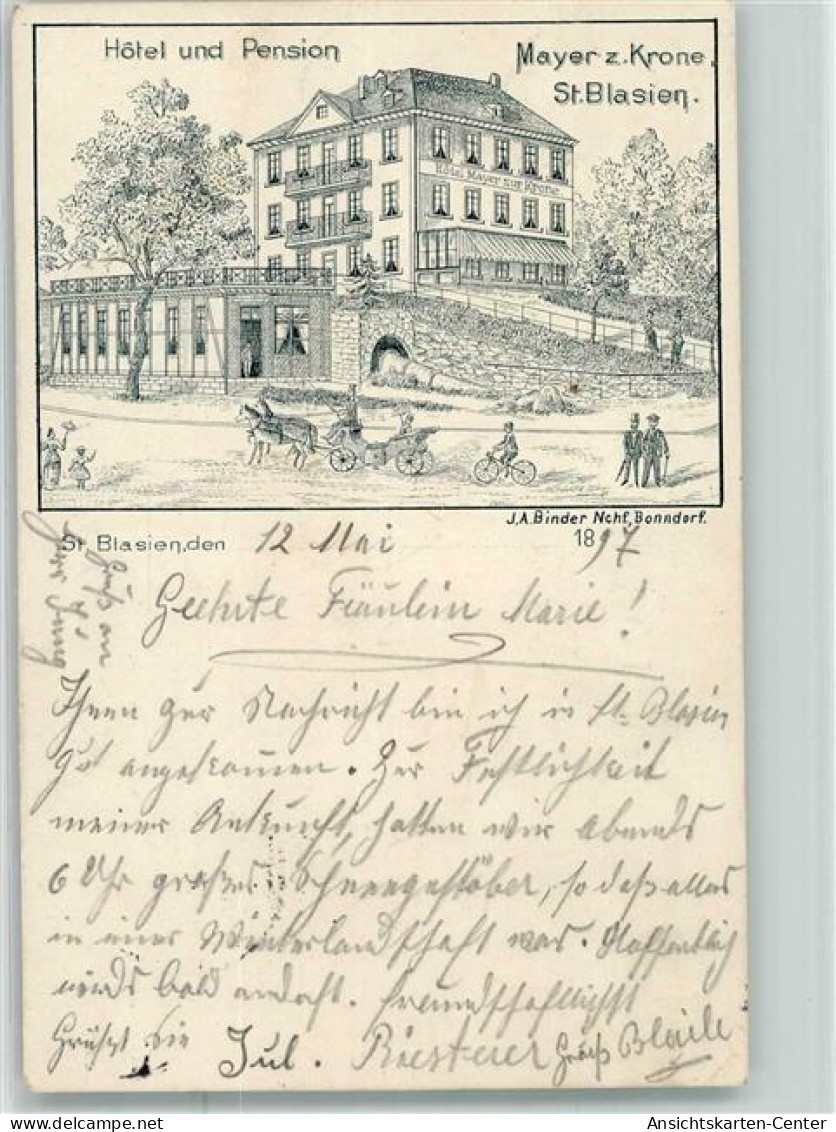 Hôtel und Pension
Mayer z. Krone,
St. Blasien.
Hôtel Mayer zur Krone
J.A. Binder Nchf, Bonndorf.
St. Blasien, den 12 Mai 1897
Gruß an
Geehrte Fräulein Marie!
Ihnen zur Nachricht bin ich in St. Blasien
gut angekommen. Zur Festlichkeit
meiner Ankunft, hatten wir Abends
6 Uhr großes Schneegestöber, so daß alles
in einer Winterlandschaft war. Hoffentlich
wirds bald anderst. Freundschaftlichst
Grüßt Sie Jul. Riesterer Gruß Blaile
Ansichtskarten-Center